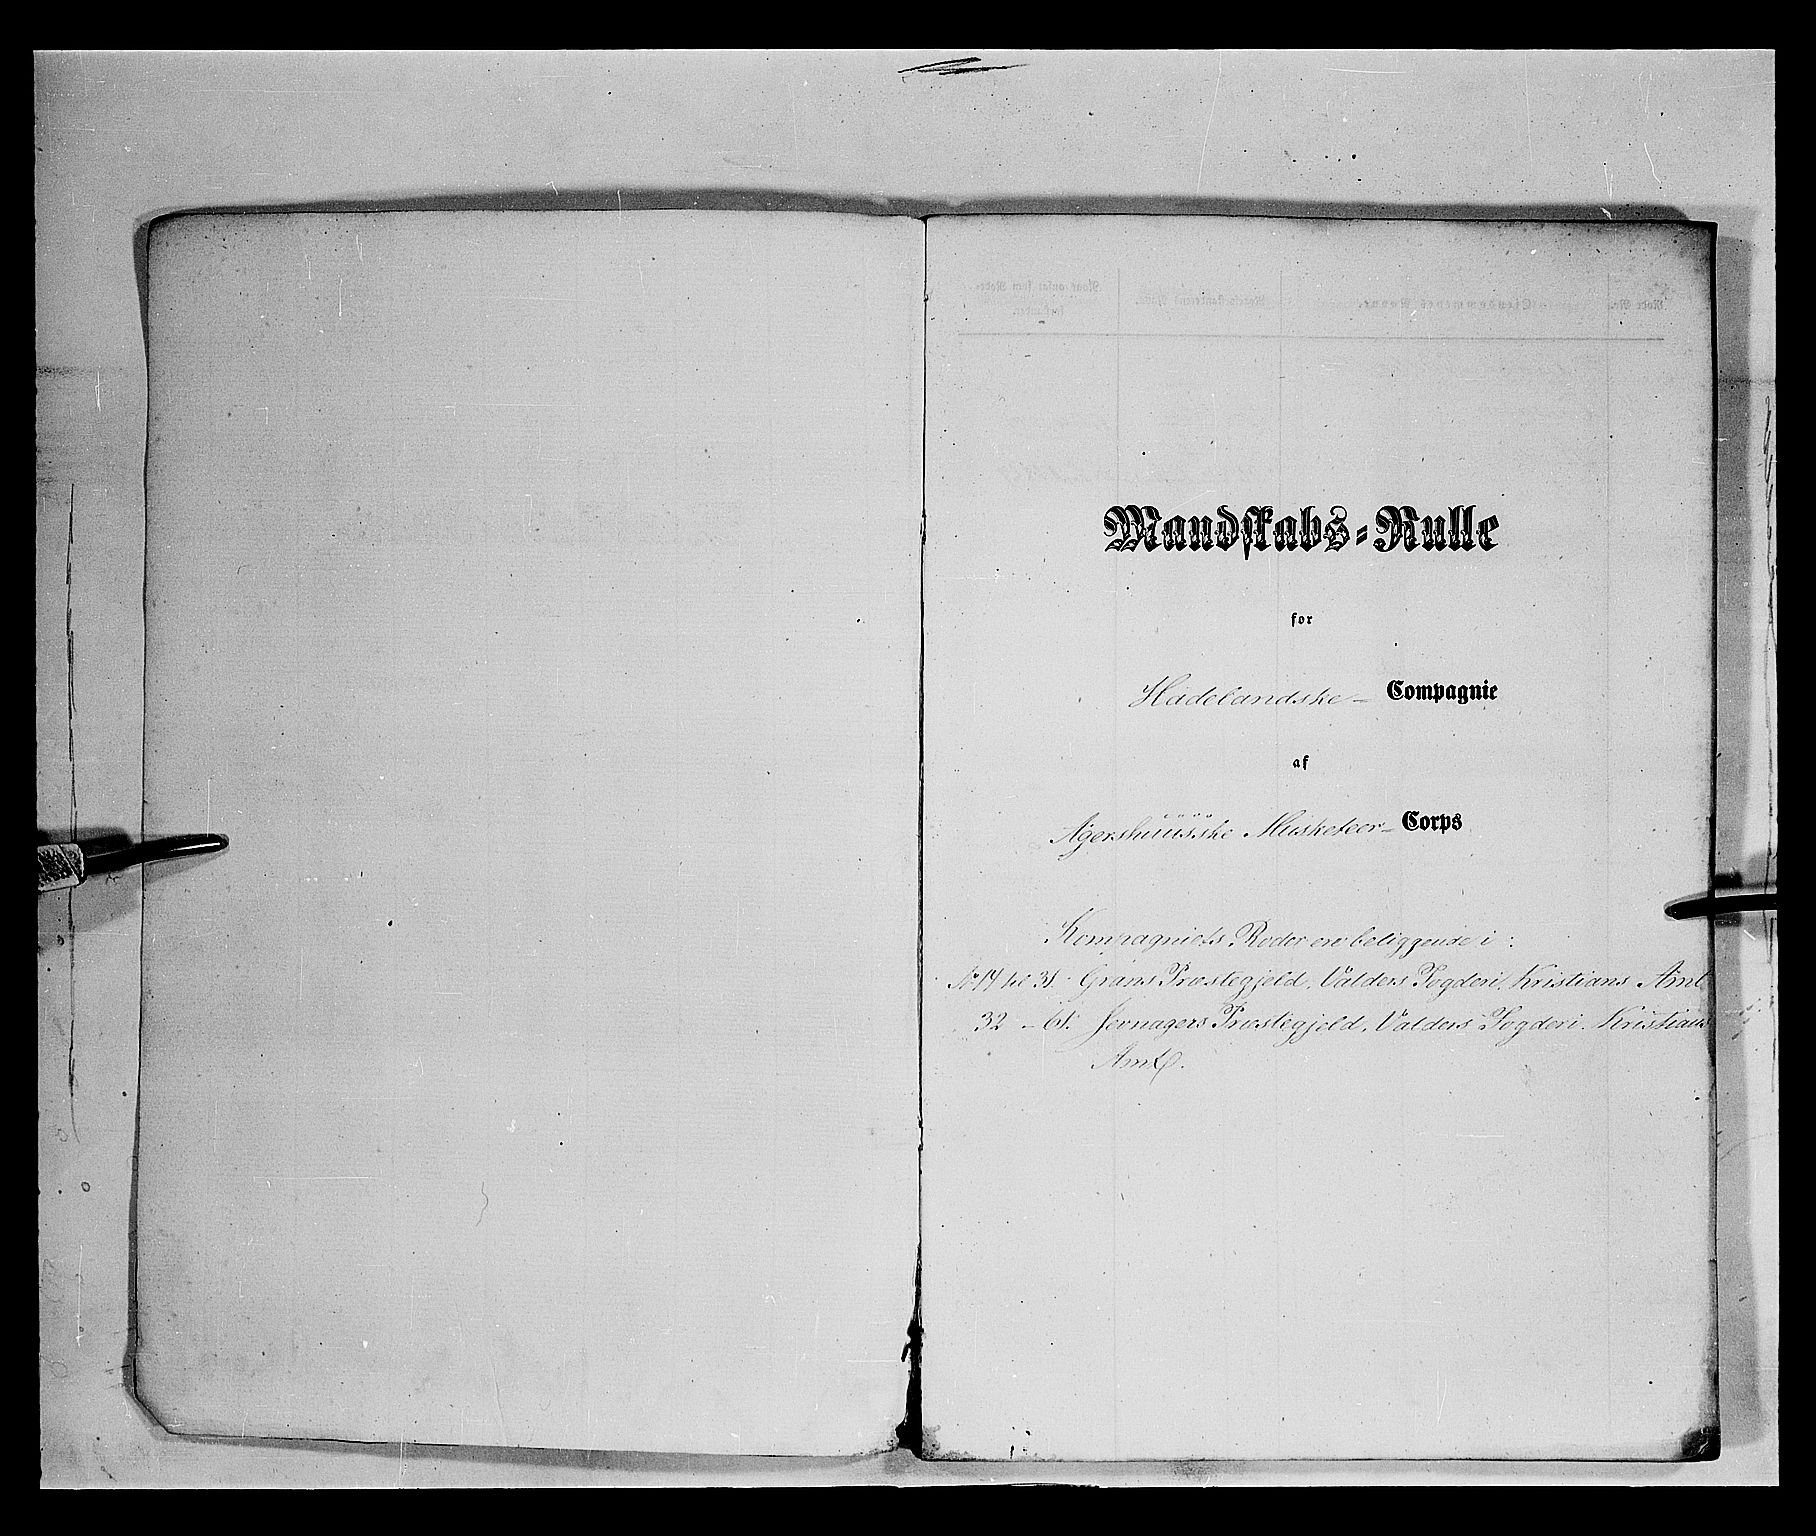 Mandskabs-Rulle
for
Hadelandske- Compagnie
af
Agershuusske Musketeer- Corps
Kompagniets Roder ere beliggende i:
No 14 til 31. Grans Præstegjeld, Valders Fogderi, Kristians Amt
32 - 61. Jevnagers Præstegjeld, Valders Fogderi. Kristians
Amt.